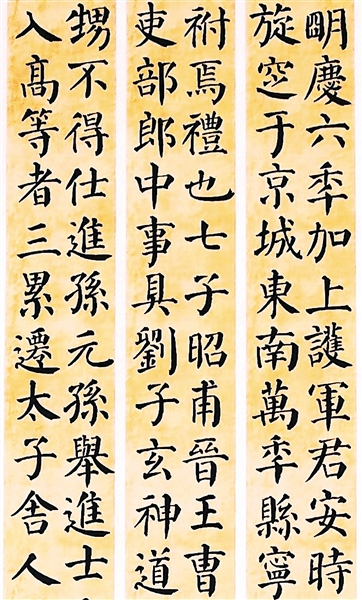 朙慶六秊加上護軍君安時
旋窆于京城東南萬秊縣寧
祔焉禮也七子昭甫晉王曹
吏部郎中事具劉子玄神道
甥不得仕進孫元孫舉進士
入髙等者三累遷太子舍人